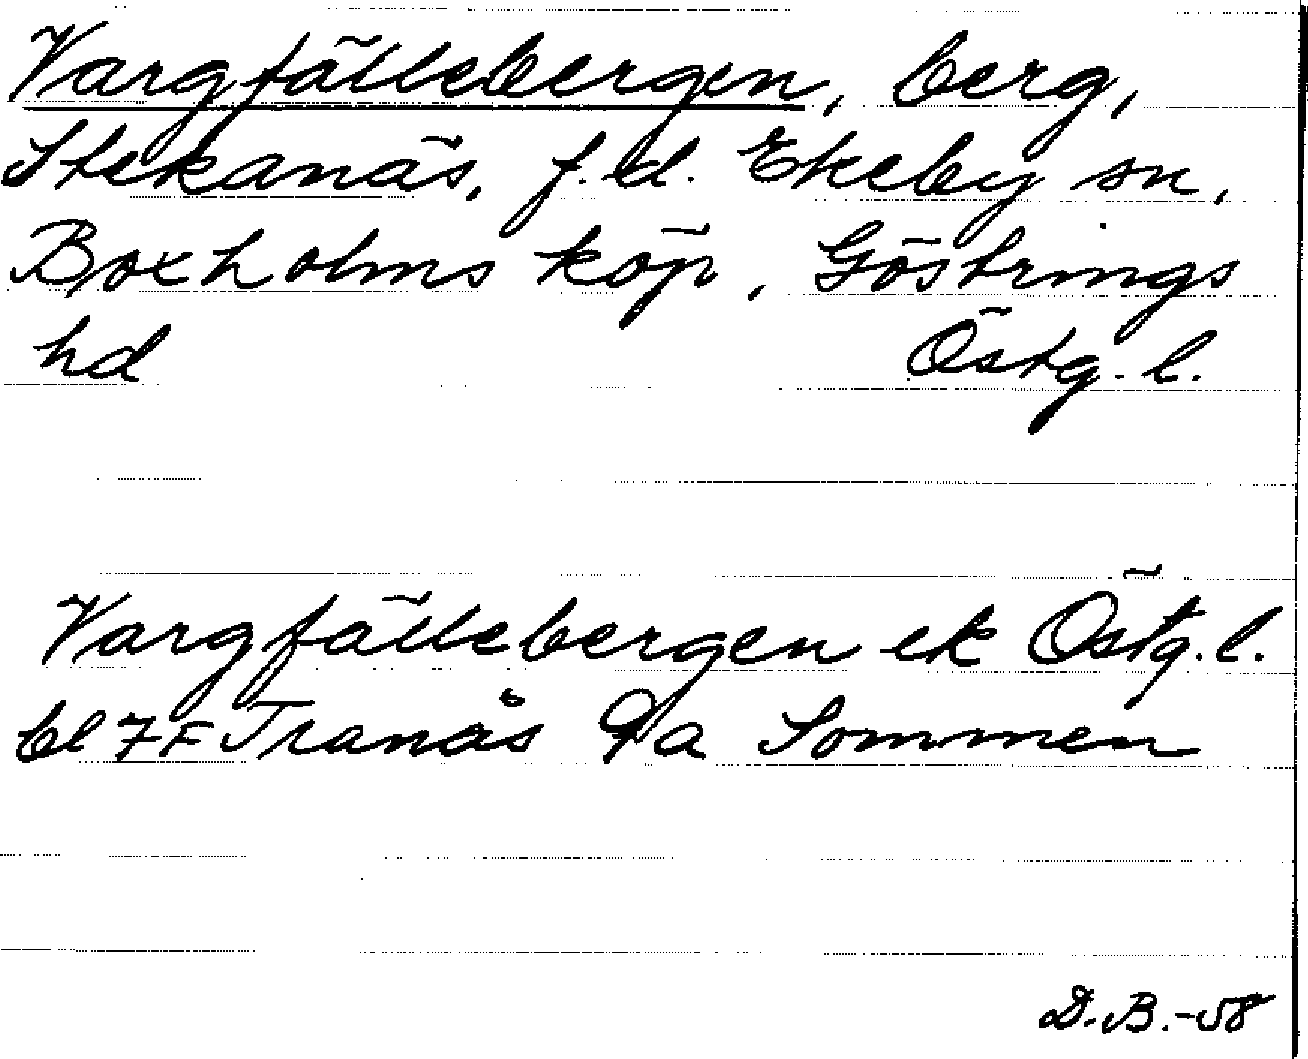 Vargfällebergen, berg,
Stekanäs, f.d. Ekeby sn,
Boxholms köp, Göstrings
hd Östg. l.
Vargfällebergen ek Östg. l.
bl 7F Tranås Pa Sommen
D.B.-58